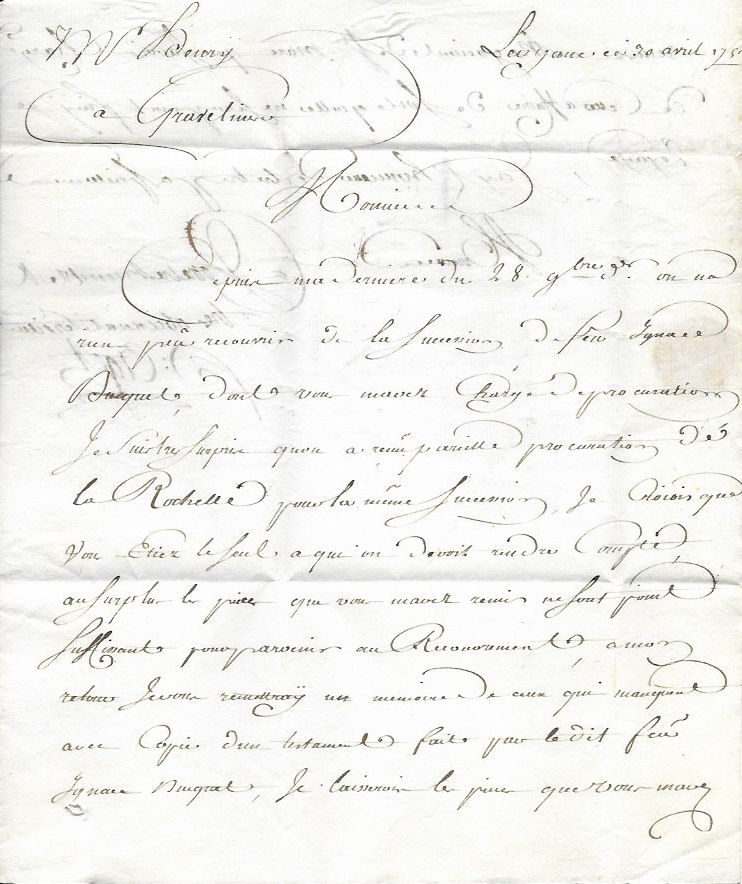 Mr Henrÿ
a Gravelines
Leogane ce 20 avril 175
Monsieur
Depuis ma derniere du 28 9bre der. on na
rien peü recouvrir de la Succession de feu Ignace
Buquet, dont vous mavez chargé de procuration
Je Suis tres Surpris quon a remi pareille procuration de
la Rochelle pour la même Succession, Je Croiois que
vous Etiez le seul a qui on devoit rendre Compte,
au Surplus les pieces que vous mavez remis ne sont point
Suffisante pour parvenir au Recouvrement, a mon
retour Je vous remettraÿ un memoire de ceux qui manquent
avec Copie dun testament fait par le dit feu
Ignace Buquet, Je laisserois les pieces que vous mavez